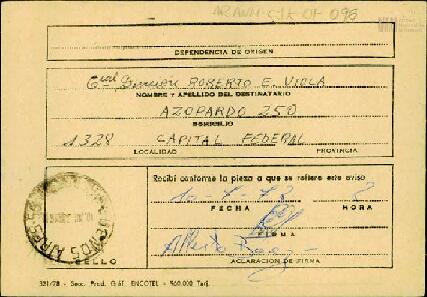 DEPENDENCIA DE ORIGEN
ROBERTO E. VIOLA
NOMBRE Y APELLIDO DEL DESTINATARIO
AZOPARDO 250
DOMICILIO
1328 CAPITAL FEDERAL
LOCALIDAD PROVINCIA
Recibí conforme la pieza a que se refiere este aviso
FECHA HORA
FIRMA
Alberto
ACLARACION DE FIRMA
SELLO
BUENOS AIRES
321/78 - Secc. Prod. Gráf. ENCOTEL - 560.000 Tarj.